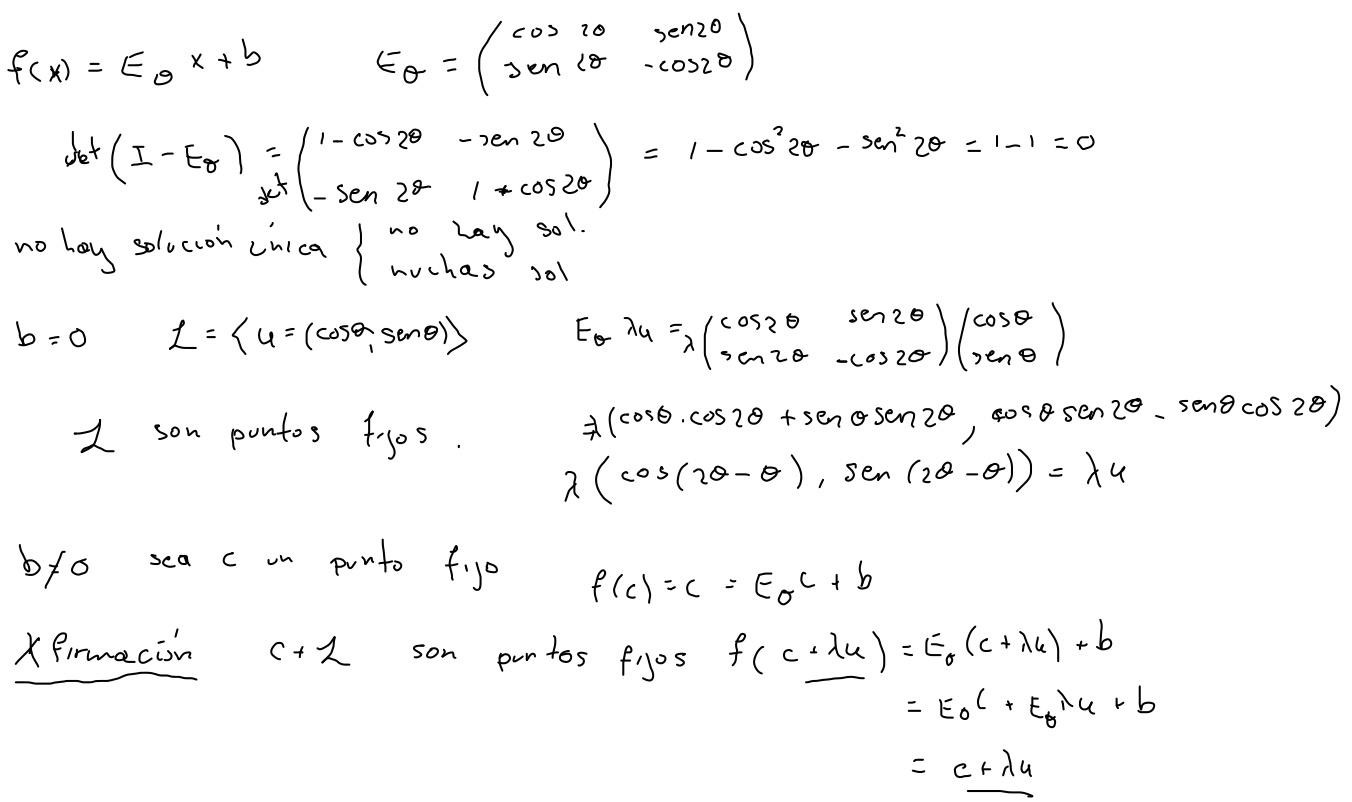 f(x) = E_θ x + b    E_θ = ( cos 2θ  sen 2θ ; sen 2θ  -cos 2θ )
det (I - E_θ) = det ( 1 - cos 2θ  -sen 2θ ; -sen 2θ  1 + cos 2θ ) = 1 - cos² 2θ - sen² 2θ = 1 - 1 = 0
no hay solución única { no hay sol.
muchas sol
b = 0    L = < u = (cos θ, sen θ) >    E_θ λu = λ ( cos 2θ  sen 2θ ; sen 2θ  -cos 2θ ) ( cos θ ; sen θ )
L son puntos fijos .    = λ (cos θ · cos 2θ + sen θ sen 2θ , cos θ sen 2θ - sen θ cos 2θ)
λ ( cos (2θ - θ ), sen (2θ - θ)) = λu
b ≠ 0   sea c un punto fijo    f(c) = c = E_θ c + b
Afirmación    c + L   son puntos fijos   f( c + λu ) = E_θ (c + λu) + b
= E_θ c + E_θ λu + b
= c + λu